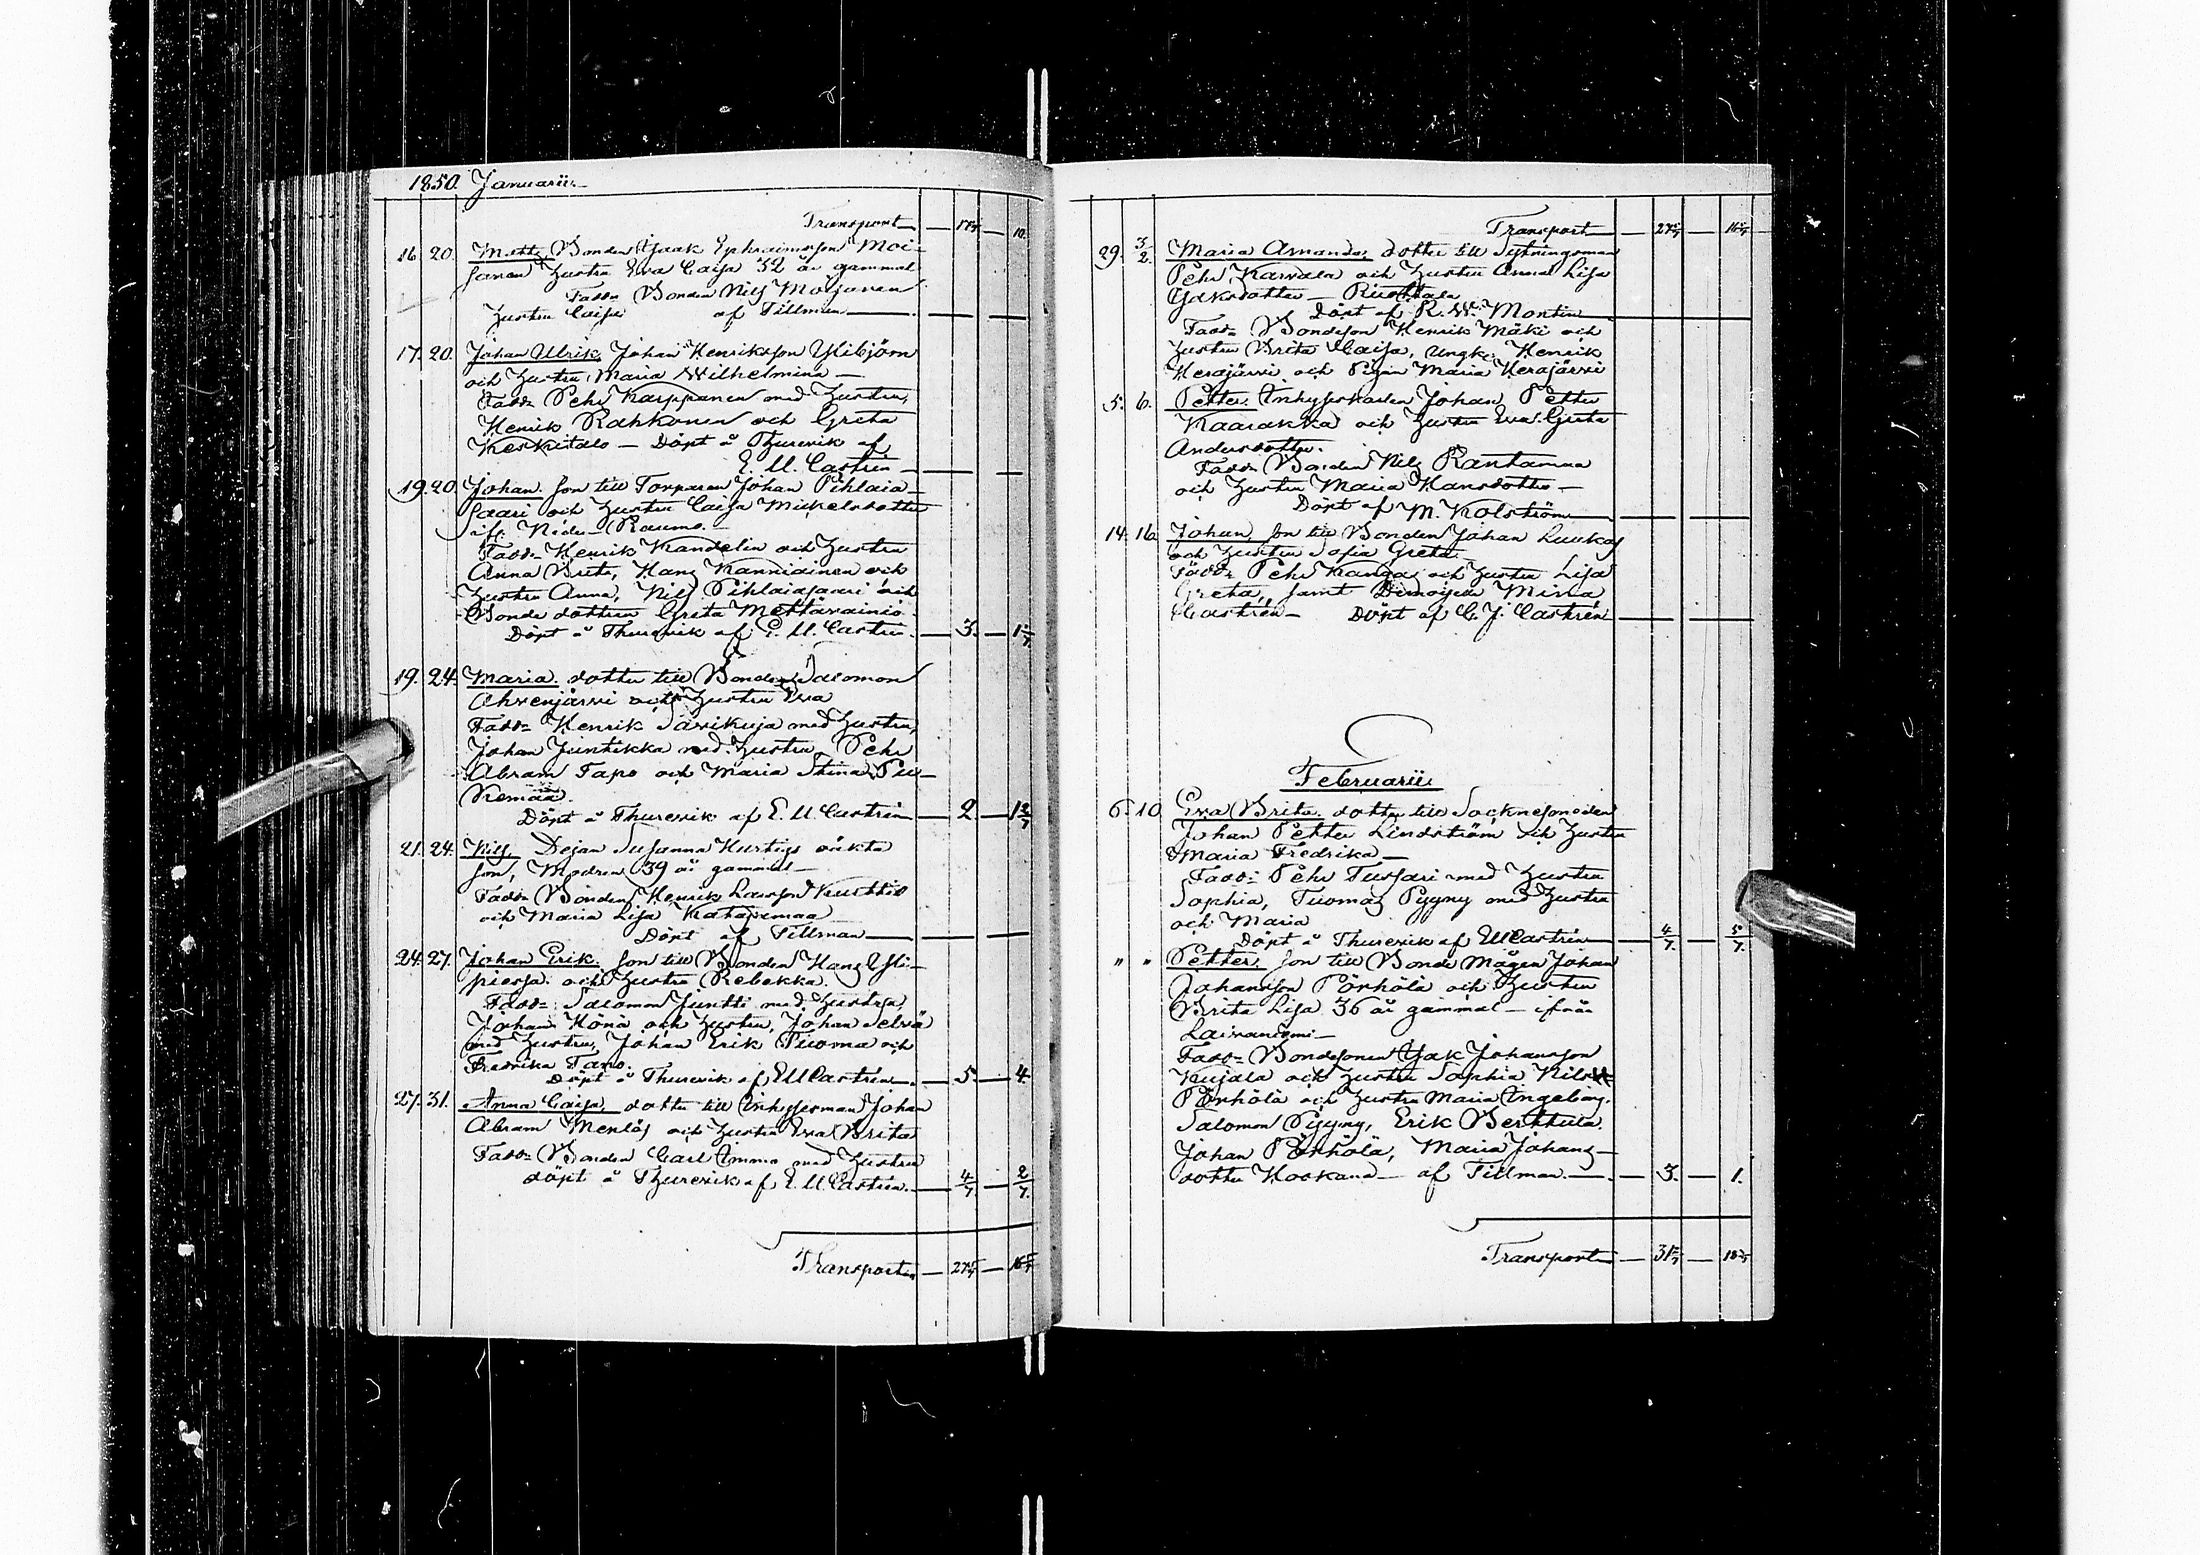 1850. Januarii
Transport — 17 — 10.
16. 20. Matts, Bonden Isaak Ephraimsson Moi-
sanen Hustru Eva Caisa 32 år gammal
Fadd= Bonden Nils Moisanen
Hustru Caisa af Tillman
17. 20. Johan Ulrik, Johan Henriksson Ylibjörn
och Hustru Maria Wilhelmina —
Fadd= Pehr Karppanen med Hustru,
Henrik Rahkonen och Greta
Keskitalo — Döpt å Thurevik af
E. U. Castrén —
19. 20. Johan. son till Torparen Johan Pihlaia-
saari och Hustru Caisa Mickelsdotter
ifr. Neder-Raumo. —
Fadd= Henrik Kandelin och Hustru
Anna Brita, Hans Kanniainen och
Hustru Anna, Nils Pihlaiasaari och
Bonde dottren Greta Mettävainio
Döpt å Thurevik af E. U. Castrén. — 3. — 1 2/7
19. 24. Maria. dotter till Bonden Salomon
Ahvenjärvi och Hustru Eva
Fadd= Henrik Särikuja med Hustru,
Johan Juntikka med Hustru, Pehr
Abram Tapo och Maria Stina Pu-
kemää.
Döpt å Thurevik af E. U. Castrén — 2 — 1 2/7
21. 24. Nils. Dejan Susanna Hurtigs oäkta
son, Modren 39 år gammal —
Fadd= Bonden Henrik Larsson Kurttio
och Maria Lisa Katajamaa
Döpt af Tillman
24. 27. Johan Erik. son till Bonden Hans Yli-
piessa. och Hustru Rebekka.
Fadd= Salomon Juntti med Hustru,
Johan Könä och Hustru, Johan Selvä
med Hustru, Johan Erik Tuoma och
Fredrika Tapo.
Döpt å Thurevik af E U Castrén. — 5. — 4.
27. 31. Anna Caisa dotter till Inhysesman Johan
Abram Menlös och Hustru Eva Brita
Fadd= Bonden Carl Imma med Hustru
döpt å Thurevik af E. U. Castrén. — 4/7 — 2/7
Transport — 27 — 16
Transport — 27 — 16
29. 3/2. Maria Amanda, dotter till Sytningsman
Pehr Karvala och Hustru Anna Lisa
Isaksdotter —
Döpt af R. W. Montin
Fadd= Bondeson Henrik Mäki och
Hustru Brita Caisa, Ungk. Henrik
Herajärvi och Pigan Maria Herajärvi
5. 6. Petter. Inhyseskarlen Johan Petter
Kaarakka och Hustru Eva Greta
Andersdotter.
Fadd= Bonden Nils Rantamaa
och Hustru Maria Hansdotter —
Döpt af M. Kolström
14. 16. Johan, son till Bonden Johan Luukas
och Hustru Sofia Greta
Fadd= Pehr Kangas och Hustru Lisa
Greta, samt Demoisell Mina
Castrén — Döpt af C. J. Castrén
Februarii
6. 10. Eva Brita. dotter till Sockneskomakaren
Johan Petter Lindström och Hustru
Maria Fredrika —
Fadd= Pehr Tussari med Hustru
Sophia, Tuomas Pyyny med Hustru
och Maria
Döpt å Thurevik af E U Castrén — 4/7 — 5/7.
" " Petter. son till Bonde Mågen Johan
Johansson Pörhölä och Hustru
Brita Lisa 36 år gammal — ifrån
Laivaniemi —
Fadd= Bondesonen Isak Johansson
Kujala och Hustru Sophia Nils
Pörhölä och Hustru Maria Ingeborg.
Salomon Pyyny, Erik Berkkula.
Johan Pörhölä, Maria Johans-
dotter Hookana — af Tillman. — 3. — 1.
Transport — 31 — 18